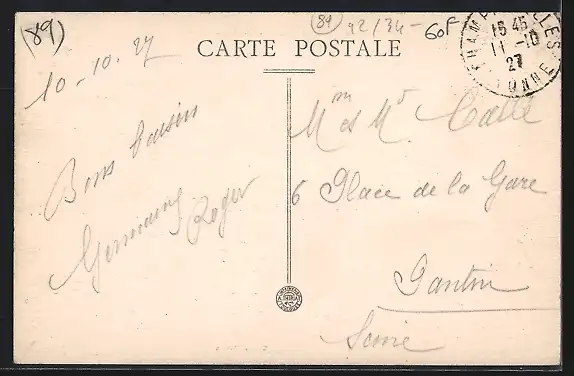 (89)
(89) 92/34-
60F
CARTE POSTALE
CHAMP ELLES
15 45
11-10
27
YONNE
10-10.27
Bons baisers
Germaine
Roger
Mm et Mr Calle
6 Place de la Gare
Pantin
Seine